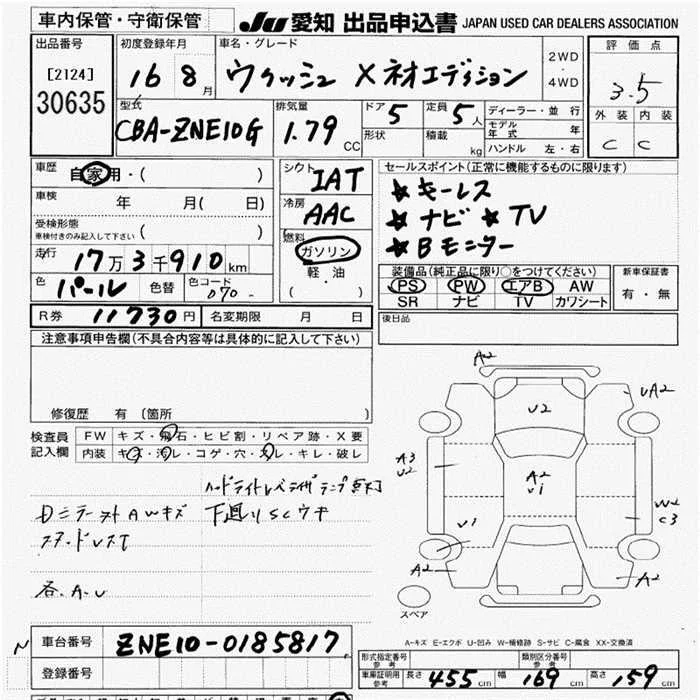 車内保管・守衛保管
JU 愛知 出品申込書 JAPAN USED CAR DEALERS ASSOCIATION
出品番号
[2124]
30635
初度登録年月
16 8月
車名・グレード
ウィッシュ Xネオエディション
2WD
・
4WD
評価点
3.5
外装 内装
C C
型式
CBA-ZNE10G
排気量
1.79 CC
ドア 5
形状
定員 5人
積載 kg
ディーラー・並行
モデル年式 年
ハンドル 左・右
車歴 自家用・( )
車検 年 月( 日)
受検形態
車検付きのみ記入して下さい ( )
走行 17万3千910km
色 パール 色替 色コード 070
シフト IAT
冷房 AAC
燃料 ガソリン
軽・油
( ・ )
セールスポイント(正常に機能するものに限ります)
★キーレス
★ナビ ★TV
★Bモニター
装備品(純正品に限り○をつけてください)
PS PW エアB AW
SR ナビ TV カワシート
新車保証書
有・無
R券 11730円 名変期限 月 日
後日品
注意事項申告欄(不具合内容等は具体的に記入して下さい)
修復歴 有〔箇所 〕
検査員記入欄
FW キズ・飛石・ヒビ割・リペア跡・X要
内装 キズ・汚レ・コゲ・穴・スレ・キレ・破レ
ハードライトレベライザランプ点灯
Dミラースト AWキズ 下廻りSCウキ
スタッドレスT
各.A.U
A2
U2
UA2
A3
U2
A2
U1
W2
C3
U1
A2
A2
スペア
A-キズ E-エクボ U-凹み W-補修跡 S-サビ C-腐食 XX-交換済
車台番号 ZNE10-0185817
登録番号
形式指定番号
参考
類別区分番号
参考
車庫証明用
参考
長さ 455cm 幅 169cm 高さ 159cm